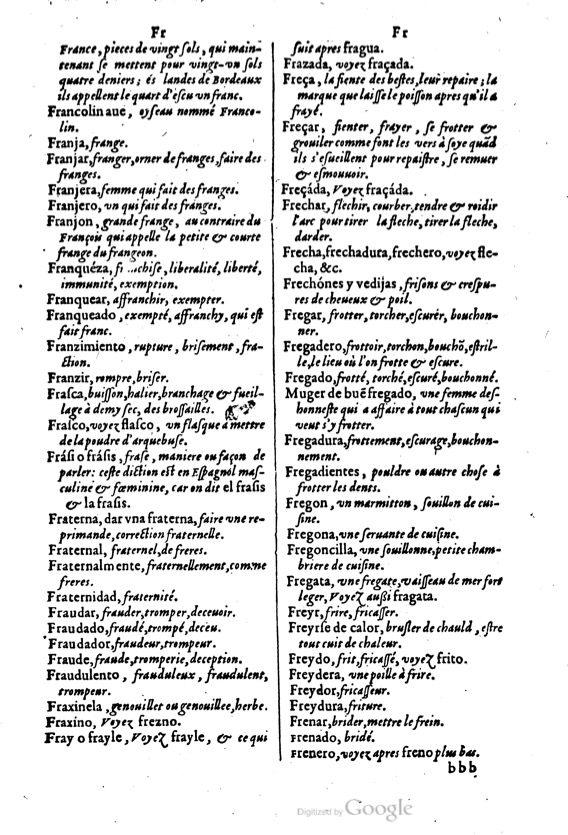 Fr
France, pieces de vingt sols, qui main-
tenant se mettent pour vingt-vn sols
quatre deniers; és landes de Bordeaux
ils appellent le quart d'escu vn franc.
Francolin aue, oyseau nommé Franco-
lin.
Franja, frange.
Franjar, franger, orner de franges, faire des
franges.
Franjera, femme qui fait des franges.
Franjero, vn qui fait des franges.
Franjon, grande frange, au contraire du
François qui appelle la petite & courte
frange du frangeon.
Franquéza, liberalité, liberté,
immunité, exemption.
Franquear, affranchir, exempter.
Franqueado, exempté, affranchy, qui est
fait franc.
Franzimiento, rupture, brisement, fra-
ction.
Franzir, rompre, briser.
Frasca, buisson, halier, branchage & fueil-
lage à demy sec, des brossailles.
Frasco, voyez flasco, vn flasque à mettre
de la poudre d'arquebuse.
Frásis o frásis, frase, maniere ou façon de
parler: ceste diction est en Espagnol mas-
culine & fœminine, car on dit el frasis
& la frasis.
Fraterna, dar vna fraterna, faire vne re-
primande, correction fraternelle.
Fraternal, fraternel, de freres.
Fraternalmente, fraternellement, comme
freres.
Fraternidad, fraternité.
Fraudar, frauder, tromper, deceuoir.
Fraudado, fraudé, trompé, deceu.
Fraudador, fraudeur, trompeur.
Fraude, fraude, tromperie, deception.
Fraudulento, frauduleux, fraudulent,
trompeur.
Fraxinela, genouillet ou genouillee, herbe.
Fraxino, Voyez frezno.
Fray o frayle, Voyez frayle, & ce qui
Fr
suit apres fragua.
Frazada, voyez fraçada.
Freça, la fiente des bestes, leur repaire; la
marque que laisse le poisson apres qu'il a
frayé.
Freçar, fienter, frayer, se frotter &
grouiler comme font les vers à soye quād
ils s'esueillent pour repaistre, se remuer
& esmouuoir.
Freçáda, Voyez fraçáda.
Frechar, flechir, courber, tendre & roidir
l'arc pour tirer la fleche, tirer la fleche,
darder.
Frecha, frechadura, frechero, voyez fle-
cha, &c.
Frechónes y vedijas, frisons & crespu-
res de cheueux & poil.
Fregar, frotter, torcher, escurer, bouchon-
ner.
Fregadero, frottoir, torchon, bouchō, estril-
le, le lieu où l'on frotte & escure.
Fregado, frotté, torché, escuré, bouchonné.
Muger de buē fregado, vne femme des-
honneste qui a affaire à tout chascun qui
veut s'y frotter.
Fregadura, frottement, escurage, bouchon-
nement.
Fregadientes, pouldre ou autre chose à
frotter les dents.
Fregon, vn marmitton, souillon de cui-
sine.
Fregona, vne seruante de cuisine.
Fregoncilla, vne souillonne, petite cham-
briere de cuisine.
Fregata, vne fregate, vaisseau de mer fort
leger, Voyez außi fragata.
Freyr, frire, fricasser.
Freyrse de calor, brusler de chauld, estre
tout cuit de chaleur.
Freydo, frit, fricassé, voyez frito.
Freydera, vne poille à frire.
Freydor, fricasseur.
Freydura, friture.
Frenar, brider, mettre le frein.
Frenado, bridé.
Frenero, voyez apres freno plus bas.
bbb
Digitized by Google